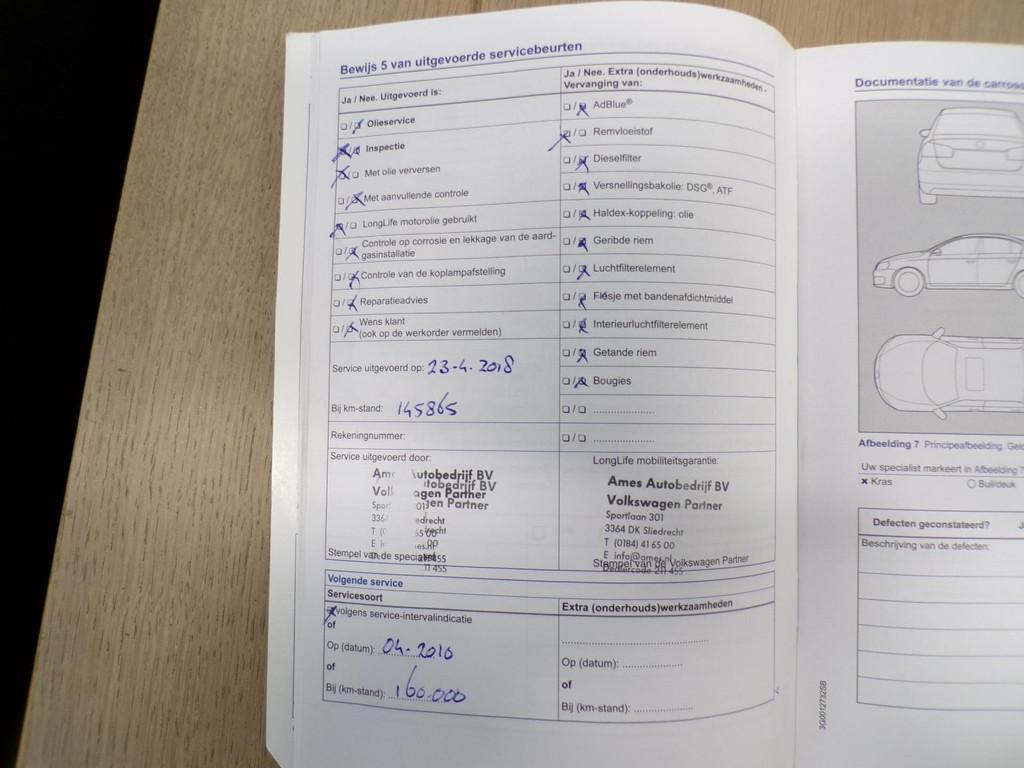 Bewijs 5 van uitgevoerde servicebeurten
Ja / Nee. Uitgevoerd is:
Olieservice
Inspectie
Met olie verversen
Met aanvullende controle
LongLife motorolie gebruikt
Controle op corrosie en lekkage van de aard-
gasinstallatie
Controle van de koplampafstelling
Reparatieadvies
Wens klant
(ook op de werkorder vermelden)
Service uitgevoerd op: 23-4-2018
Bij km-stand: 145865
Rekeningnummer:
Service uitgevoerd door:
Autobedrijf BV
Stempel van de specialist
Ja / Nee. Extra (onderhouds)werkzaamheden.
Vervanging van:
AdBlue®
Remvloeistof
Dieselfilter
Versnellingsbakolie: DSG®, ATF
Haldex-koppeling: olie
Geribde riem
Luchtfilterelement
Flesje met bandenafdichtmiddel
Interieurluchtfilterelement
Getande riem
Bougies
LongLife mobiliteitsgarantie:
Ames Autobedrijf BV
Volkswagen Partner
Sportlaan 301
3364 DK Sliedrecht
T (0184) 41 65 00
E info@ames.nl
Dealercode 211 455
Stempel van de Volkswagen Partner
Volgende service
Servicesoort
volgens service-intervalindicatie
of
Op (datum): 04-2010
of
Bij (km-stand): 160.000
Extra (onderhouds)werkzaamheden
Op (datum):
of
Bij (km-stand):
Documentatie van de
Afbeelding 7 Principeafbeelding.
Uw specialist markeert in Afbeelding 7
× Kras
Buil/deuk
Defecten geconstateerd?
Beschrijving van de defecten:
3G0012732SB